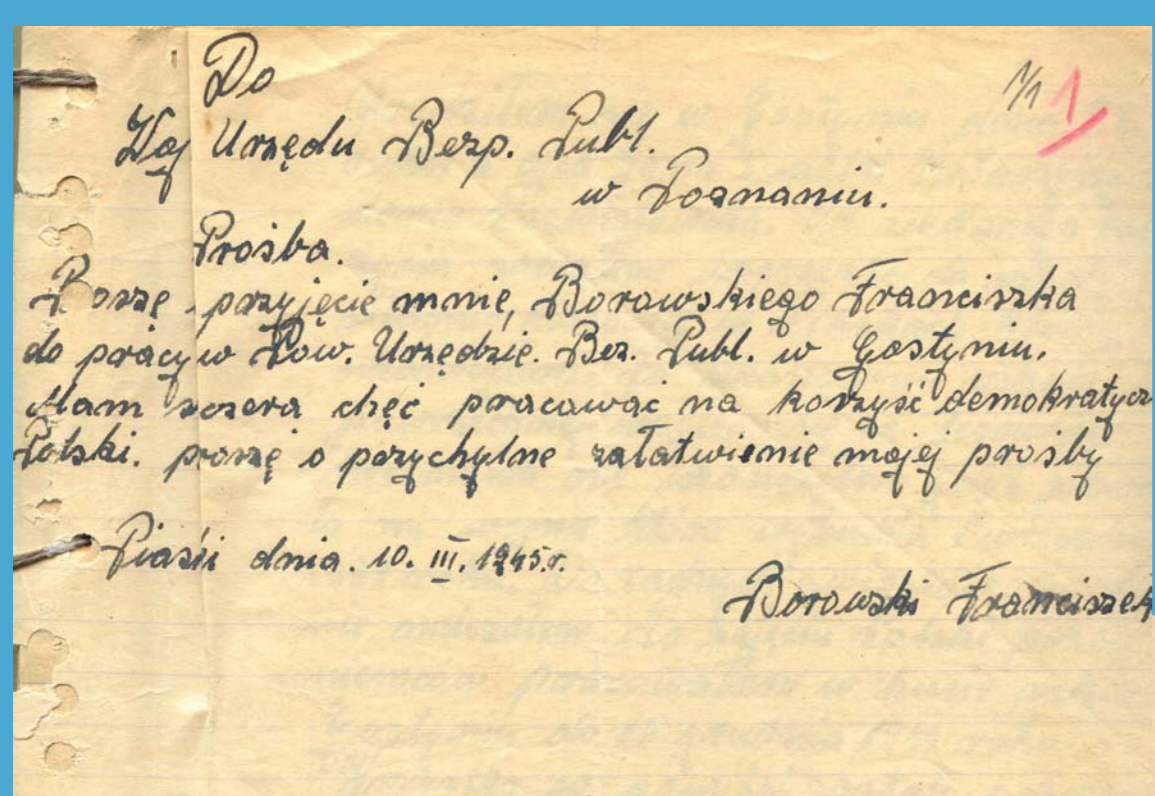 Do
1/1 1
Woj Urzędu Bezp. Publ.
w Poznaniu.
Prośba.
Proszę przyjęcie mnie, Borowskiego Franciszka
do pracy w Pow. Urzędzie. Bez. Publ. w Gostyniu.
Mam szczera chęć pracować na korzyść demokratycz
Polski. proszę o przychylne załatwienie mojej prośby
Piaski dnia. 10. III. 1945.r.
Borowski Franciszek